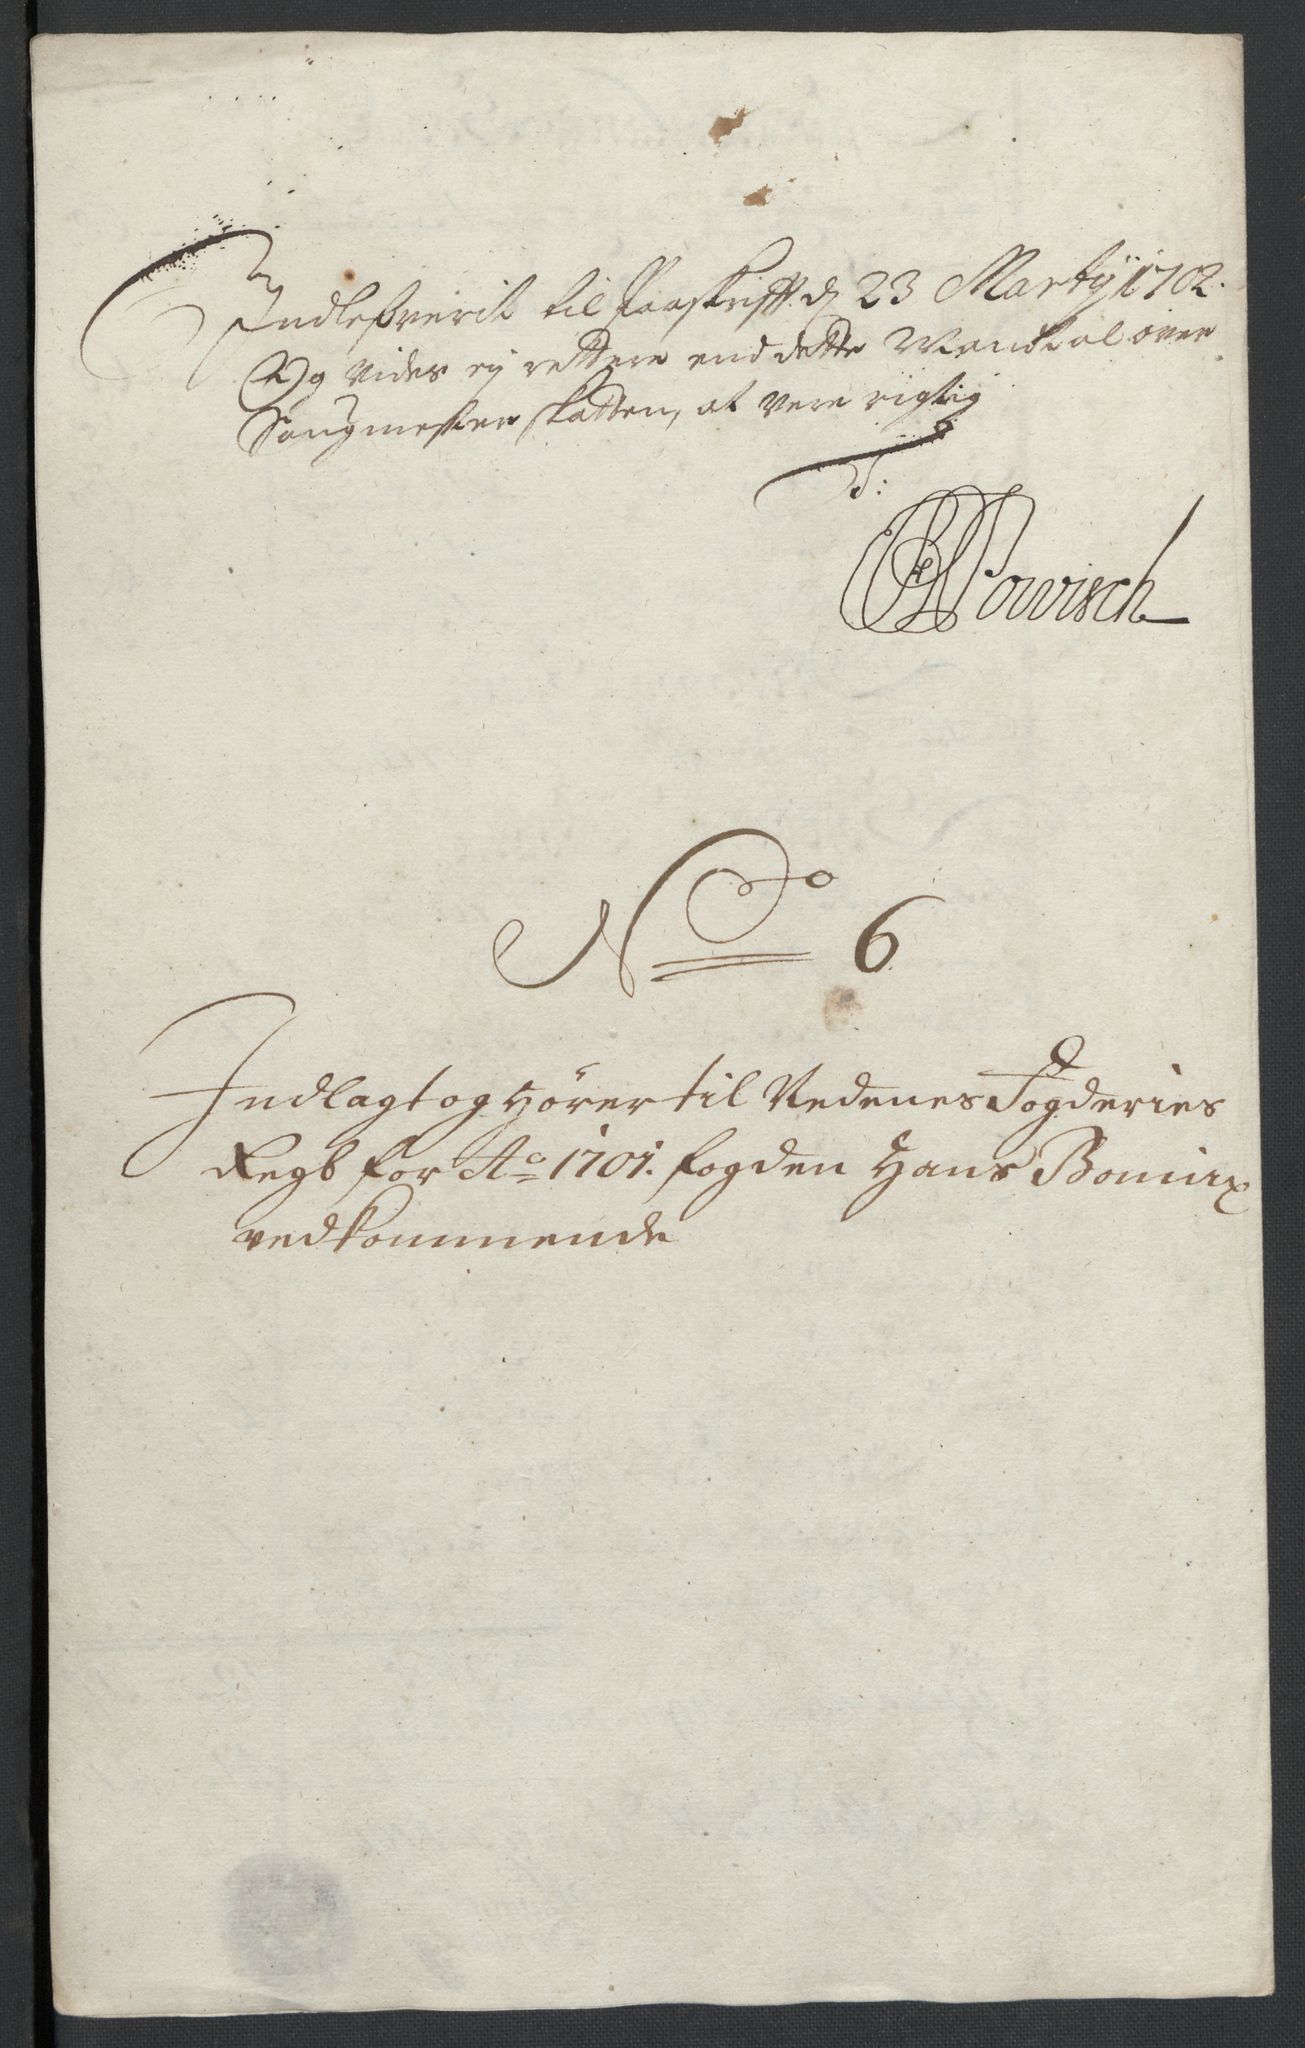 Indlefverit til Paaskrifft. d 23 Martÿ 1702.
Og vides ej rettere end dette Mandtal over
Saugmester skatten, at vere rigtig
T:
Powisch
No 6.
Indlagt og Hörer til Nedenes Fogderies
Regb for Ao 1701. fogden Hans
vedkommende